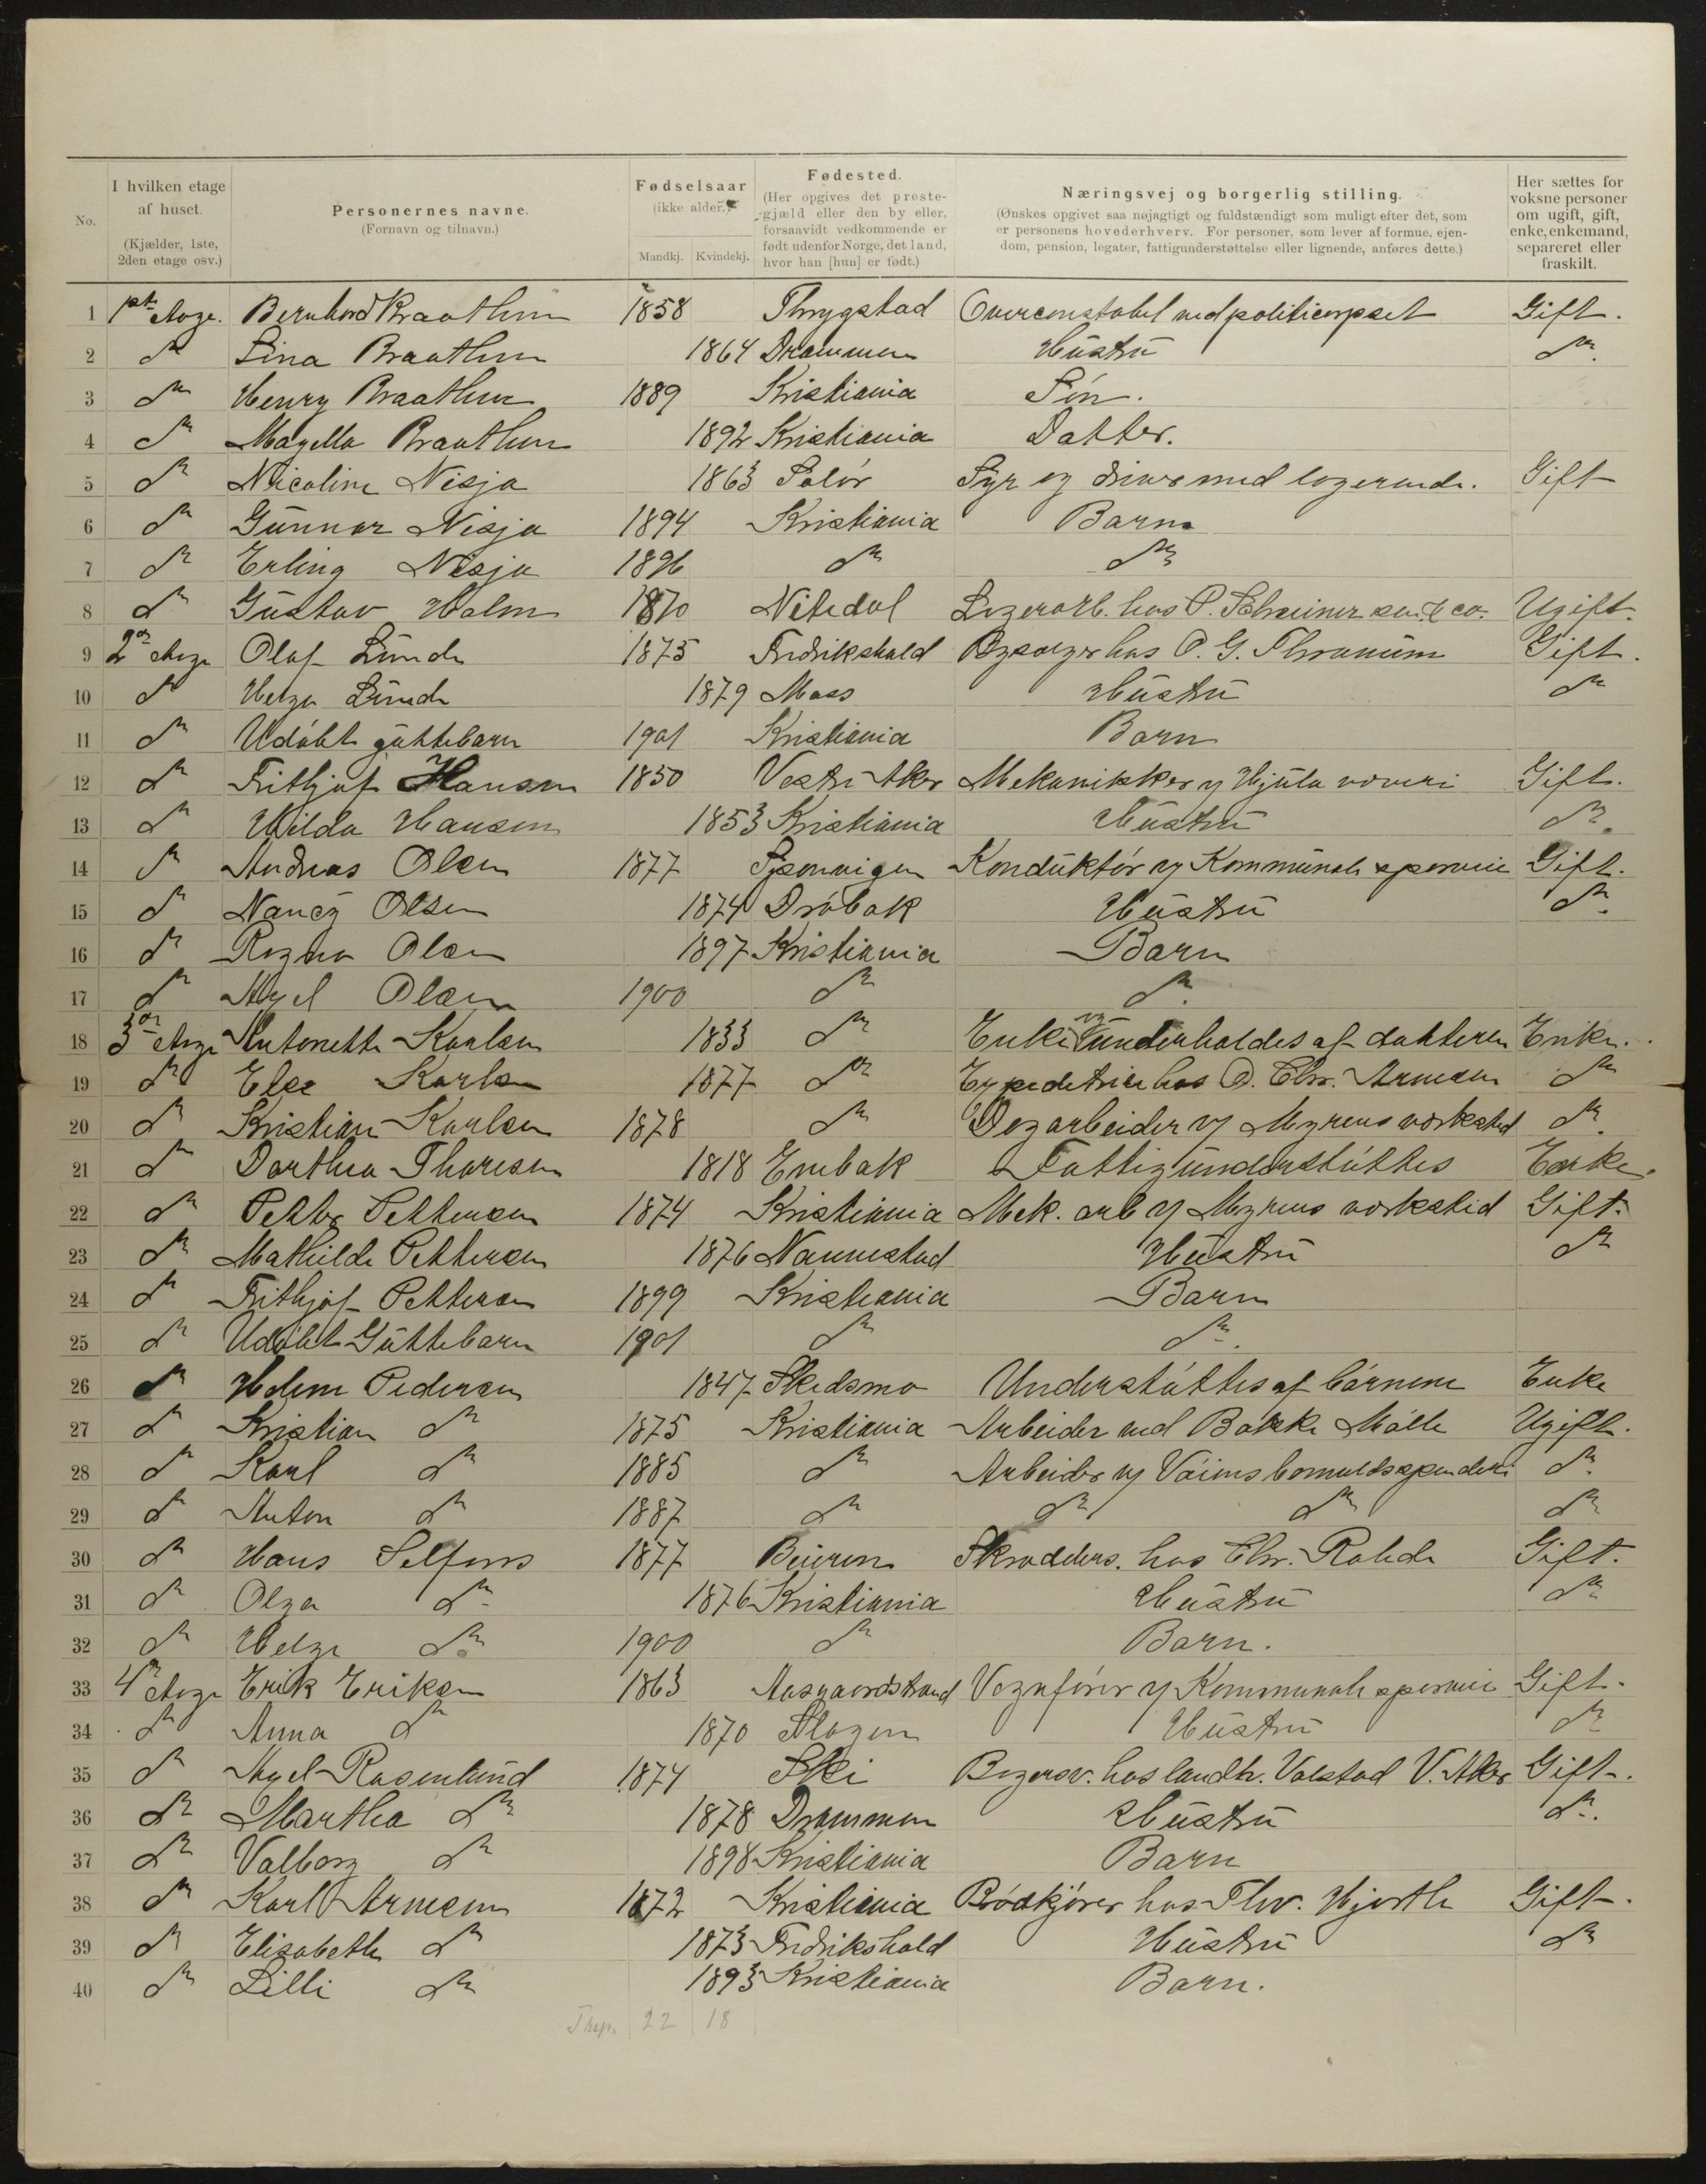 No.
I hvilken etage af huset. (Kjælder, 1ste, 2den etage osv.)
Personernes navne. (Fornavn og tilnavn.)
Fødselsaar (ikke alder.) Mandkj. Kvindekj.
Fødested. (Her opgives det prestegjæld eller den by eller, forsaavidt vedkommende er født udenfor Norge, det land, hvor han [hun] er født.)
Næringsvej og borgerlig stilling. (Ønskes opgivet saa nøjagtigt og fuldstændigt som muligt efter det, som er personens hovederhverv. For personer, som lever af formue, ejendom, pension, legater, fattigunderstøttelse eller lignende, anføres dette.)
Her sættes for voksne personer om ugift, gift, enke, enkemand, separeret eller fraskilt.
1 1ste etage. Bernhard Braathen 1858 Thrygstad Overconstabel ved politicorpset Gift.
2 do Lina Braathen 1864 Drammen Hüstrü do.
3 do Henry Braathen 1889 Kristiania Søn.
4 do Magella Braathen 1892 Kristiania Datter.
5 do Nicoline Nisja 1863 Solør Syr og driver med logerende. Gift
6 do Günnar Nisja 1894 Kristiania Barn
7 do Erling Nisja 1896 do do
8 do Güstav Holm 1870 Nitedal Lagerarb. hos P. Schreiner sen. & co. Ugift.
9 2den etage Olaf Lünde 1875 Fredrikshald Bysælger hos O. G. Gift.
10 do Helga Lünde 1879 Moss Hüstrü do
11 do Udøbt güttebarn 1901 Kristiania Barn
12 do Frithjof Hansen 1850 Vestre Aker Mekanikker v/ Hjüla væveri Gift.
13 do Hilda Hansen 1853 Kristiania Hüstrü do.
14 do Andreas Olsen 1877 Sponvigen Kondüktør v/ Kommünale sporveie Gift.
15 do Nancy Olsen 1874 Drøbak Hüstrü do.
16 do Ragna Olsen 1897 Kristiania Barn
17 do Axel Olsen 1900 do do.
18 3die etage Antonette Karlsen 1833 do Enke og ünderholdes af datteren Enke.
19 do Else Karlsen 1877 do Expeditrice hos O. Chr. Arnesen do
20 do Kristian Karlsen 1878 do Dagarbeider v/ Myrens værksted do.
21 do Dorthea Thoresen 1818 Enebak Fattigünderstøttes Enke.
22 do Petter Pettersen 1874 Kristiania Mek. arb v/ Myrens værksted Gift.
23 do Mathilde Pettersen 1876 Nannestad Hüstrü do
24 do Frithjof Pettersen 1899 Kristiania Barn
25 do Udøbt Güttebarn 1901 do do.
26 do Helene Pedersen 1847 Skedsmo Understøttes af børnene Enke
27 do Kristian do 1875 Kristiania Arbeider ved Bakke Mølle Ugift.
28 do Karl do 1885 do Arbeider v/ Vøiens bomuldsspinderi do.
29 do Anton do 1887 do do do do
30 do Hans Selfors 1877 Beieren Skræddersv. hos Chr. Rohde Gift.
31 do Olga do 1876 Kristiania Hüstrü do
32 do Helge do 1900 do Barn.
33 4de etage Erik Eriksen 1863 Aasgaardstrand Vognfører v/ Kommunale sporveie Gift.
34 do Anna do 1870 Slagen Hüstrü do
35 do Axel Rosenlünd 1874 Ski Bagersv. hos landh. Volstad V. Aker Gift.
36 do Martha do 1878 Drammen Hüstrü do.
37 do Valborg do 1898 Kristiania Barn
38 do Karl Arnesen 1872 Kristiania Brødkjører hos Thv. Hjorth Gift.
39 do Elisabeth do 1873 Fredrikshald Hüstrü do
40 do Lilli do 1893 Kristiania Barn.
22 18